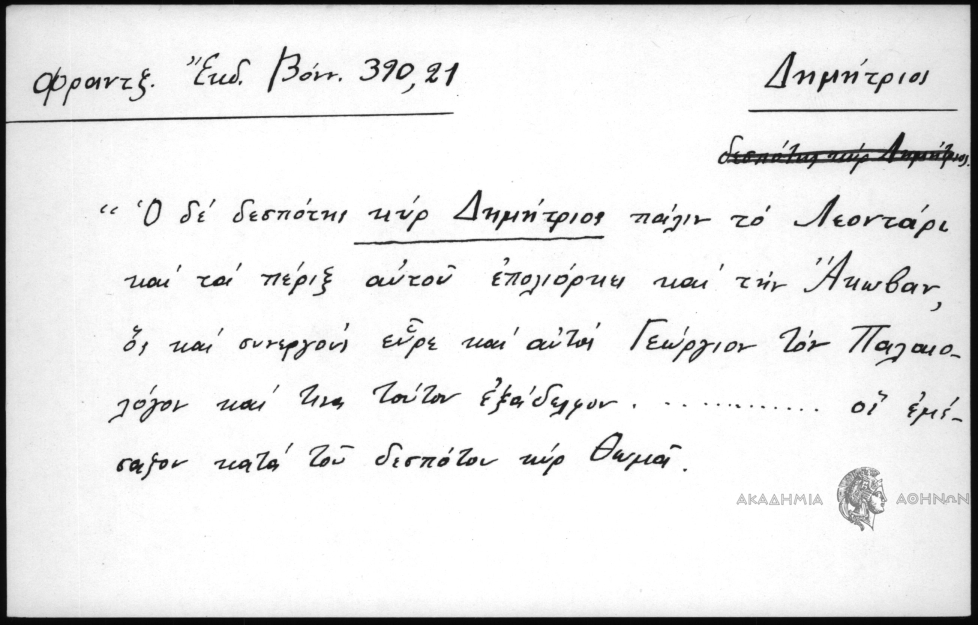 Φραντζ. Ἔκδ. Βόνν. 390,21
Δημήτριος
δεσπότης κύρ Δημήτριος
“ Ὁ δέ δεσπότης κύρ Δημήτριος πάλιν τό Λεοντάρι
καί τά πέριξ αὐτοῦ ἐπολιόρκει καί τήν Ἄκωβαν,
ὅς καί συνεργούς εὗρε καί αὐτός Γεώργιον τόν Παλαιο-
λόγον καί τινα τούτου ἐξάδελφον . . . . . . . . . . . . . οἵ ἐμέ-
σαζον κατά τοῦ δεσπότου κύρ Θωμᾶ.
ΑΚΑΔΗΜΙΑ ΑΘΗΝΩΝ